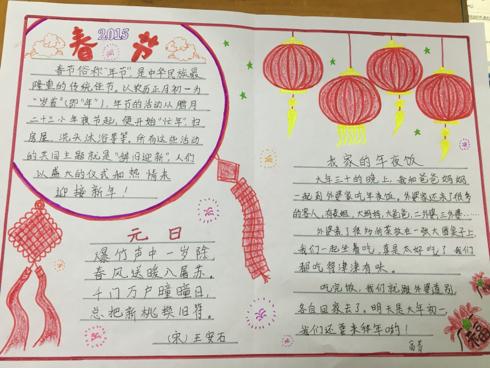 2015
春节
春节俗称"年节"是中华民族最
隆重的传统佳节，以农历正月初一为
"岁首"(即"年")，年节的活动从腊月
二十三小年夜节起，便开始"忙年"：扫
房屋、洗头沐浴等等，所有这些活动
的共同主题就是"辞旧迎新"，人们
以盛大的仪式和热情来
迎接新年！
元日
爆竹声中一岁除，
春风送暖入屠苏。
千门万户曈曈日，
总把新桃换旧符。
(宋)王安石
我家的年夜饭
大年三十的晚上，我和爸爸妈妈
一起到外婆家吃年夜饭，外婆家还来了很多
的客人，有表姐、大妈妈、大爸爸、二外婆、三外婆……
外婆煮了很多的菜放在一张大圆桌子上，
我们一起坐着吃，真是太好吃了，我们
都吃得津津有味。
吃完饭，我们就跟外婆道别，
各自回家去了，明天是大年初一，
我们还要来拜年的哟！
福